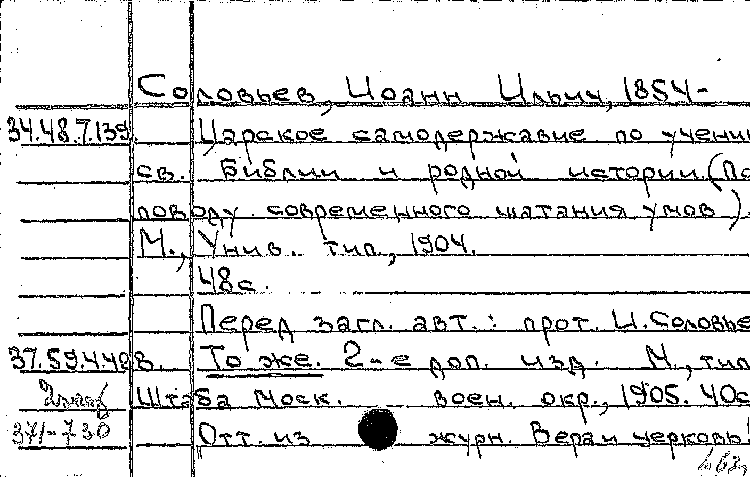 Соловьев, Иоанн Ильич, 1854-
34.48.7.139. Царское самодержавие по учени
св. Библии и родной истории. (По
поводу современного шатания умов)
М., Унив. тип., 1904.
48с.
Перед загл. авт.: прот. И. Соловье
37.59.4.498. То же. 2-е доп. изд. М., тип
Штаба Моск. воен. окр., 1905. 40с
371-730 Отт. из журн. Вера и церковь